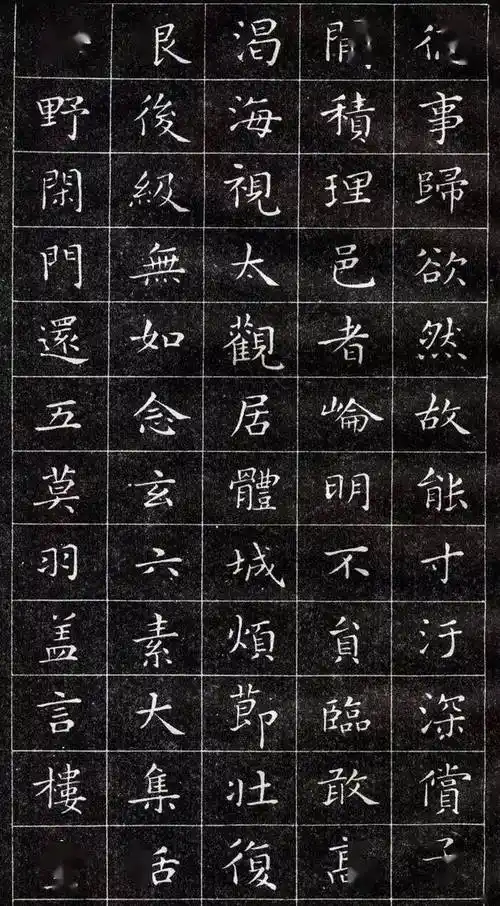 事歸欲然故能寸汙深償
積理邑者崘明不貟臨敢高
渴海視太觀居體城煩節壯復
艮後級無如念玄六素大集舌
野閑門還五莫羽盖言樓